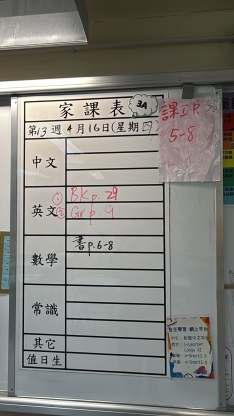 家課表 3A
第13週4月16日(星期四)
中文
英文
① BK p.29
② Gr p.9
數學
書p.6-8
常識
其它
值日生
5-8
自主學習網上平台